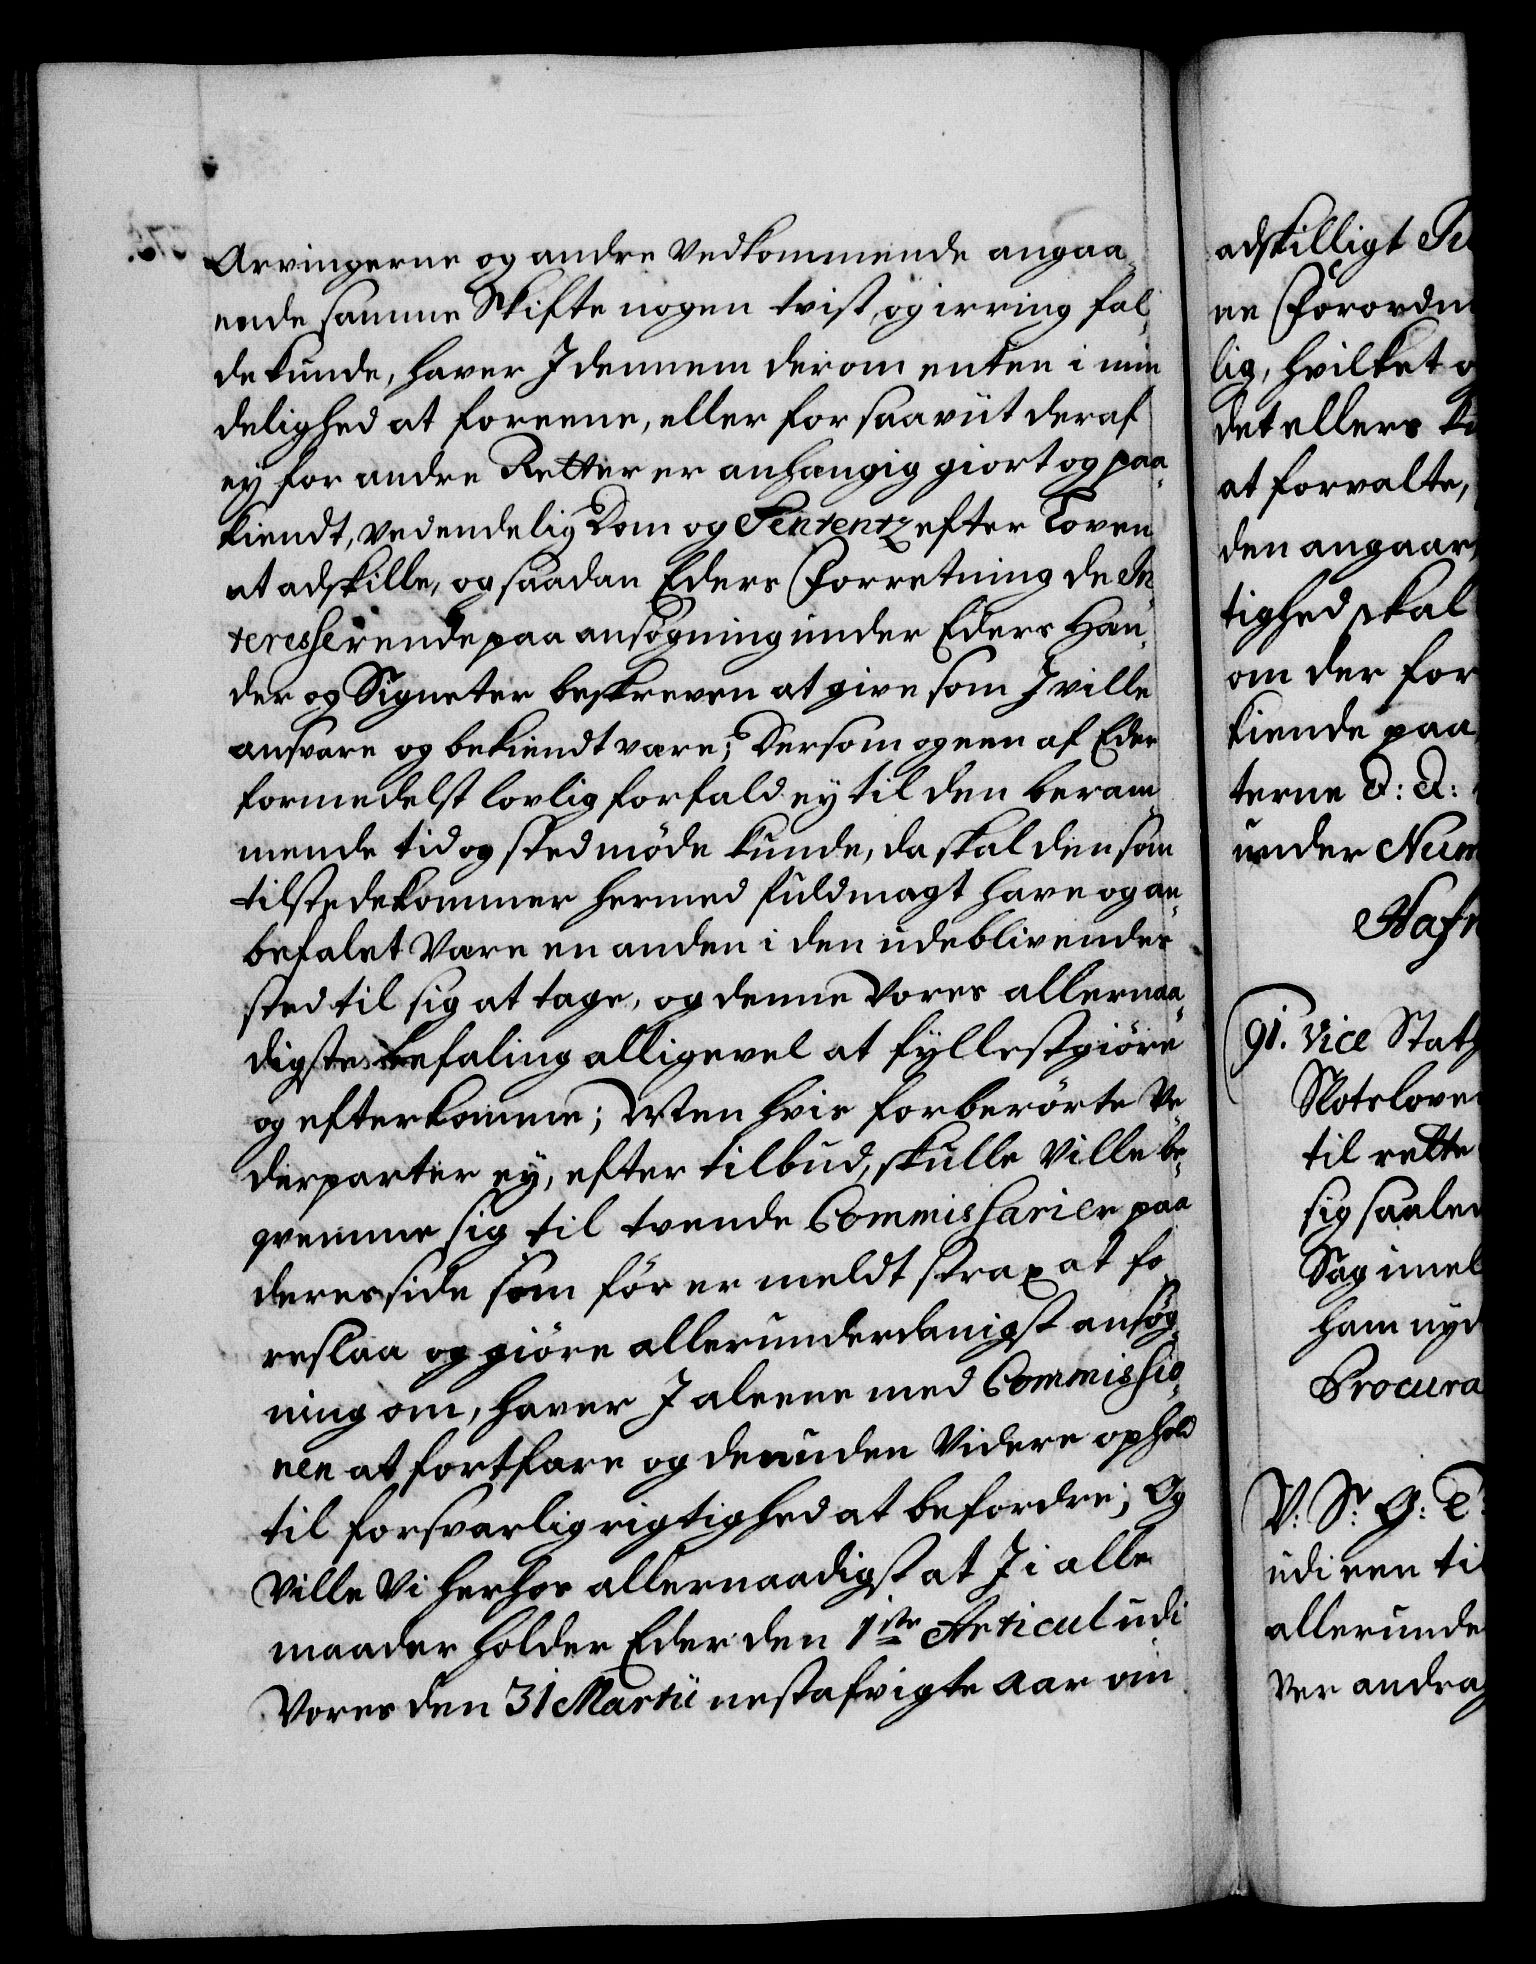 Arvingerne og andre Vedkommende angaa-
ende samme Skifte nogen tvist, og irring fal-
de kunde, haver I dennem derom enten i min-
delighed at foreene, eller for saavüt deraf
ey for andre Retter er anhængig giort og paa-
kiendt, ved endelig Dom og Sententz efter Loven
at adskille, og saadan Eders Forretning de In-
teresserende paa ansøgning under Eders Hæn-
der og Signeter beskreven at give som I ville
ansvare og bekiendt være; Dersom og een af Eder
formedelst lovlig forfald ey til den beram-
mende tid og sted møde kunde, da skal den som
tilstedekommer hermed fuldmagt have og an-
befalet Være en anden i den udeblivendes
sted til sig at tage, og denne Vores allernaa-
digste befaling alligevel at fyllestgiøre
og efterkomme; Men hvis forberørte Ve-
derparter ey, efter tilbud, skulle Ville be-
qvemme sig til tvende Commissarier paa
deres side som før er meldt strax at fo-
reslaa og giøre allerunderdanigst ansøg-
ning om, haver I aleene med Commissio-
nen at fortfare og den uden Videre ophold
til forsvarlig rigtighed at befordre; Og
Ville Vi herhos allernaadigst at I i alle
maader holder Eder den 1ste Articul udi
Vores den 31 Martii nestafvigte Aar om
adskilligt
ne Forordn
lig, hvilket
det ellers
at forvalte,
den angaar,
tighed skal
om der for
kiende paa
terne d: d:
under Num
Hafn
91. Vice Stath
Slotslove
til rette
sig saalen
Sag imel
ham nyd
Procura
V: Sr: G: T:
udi een til
allerunde
ver andrag